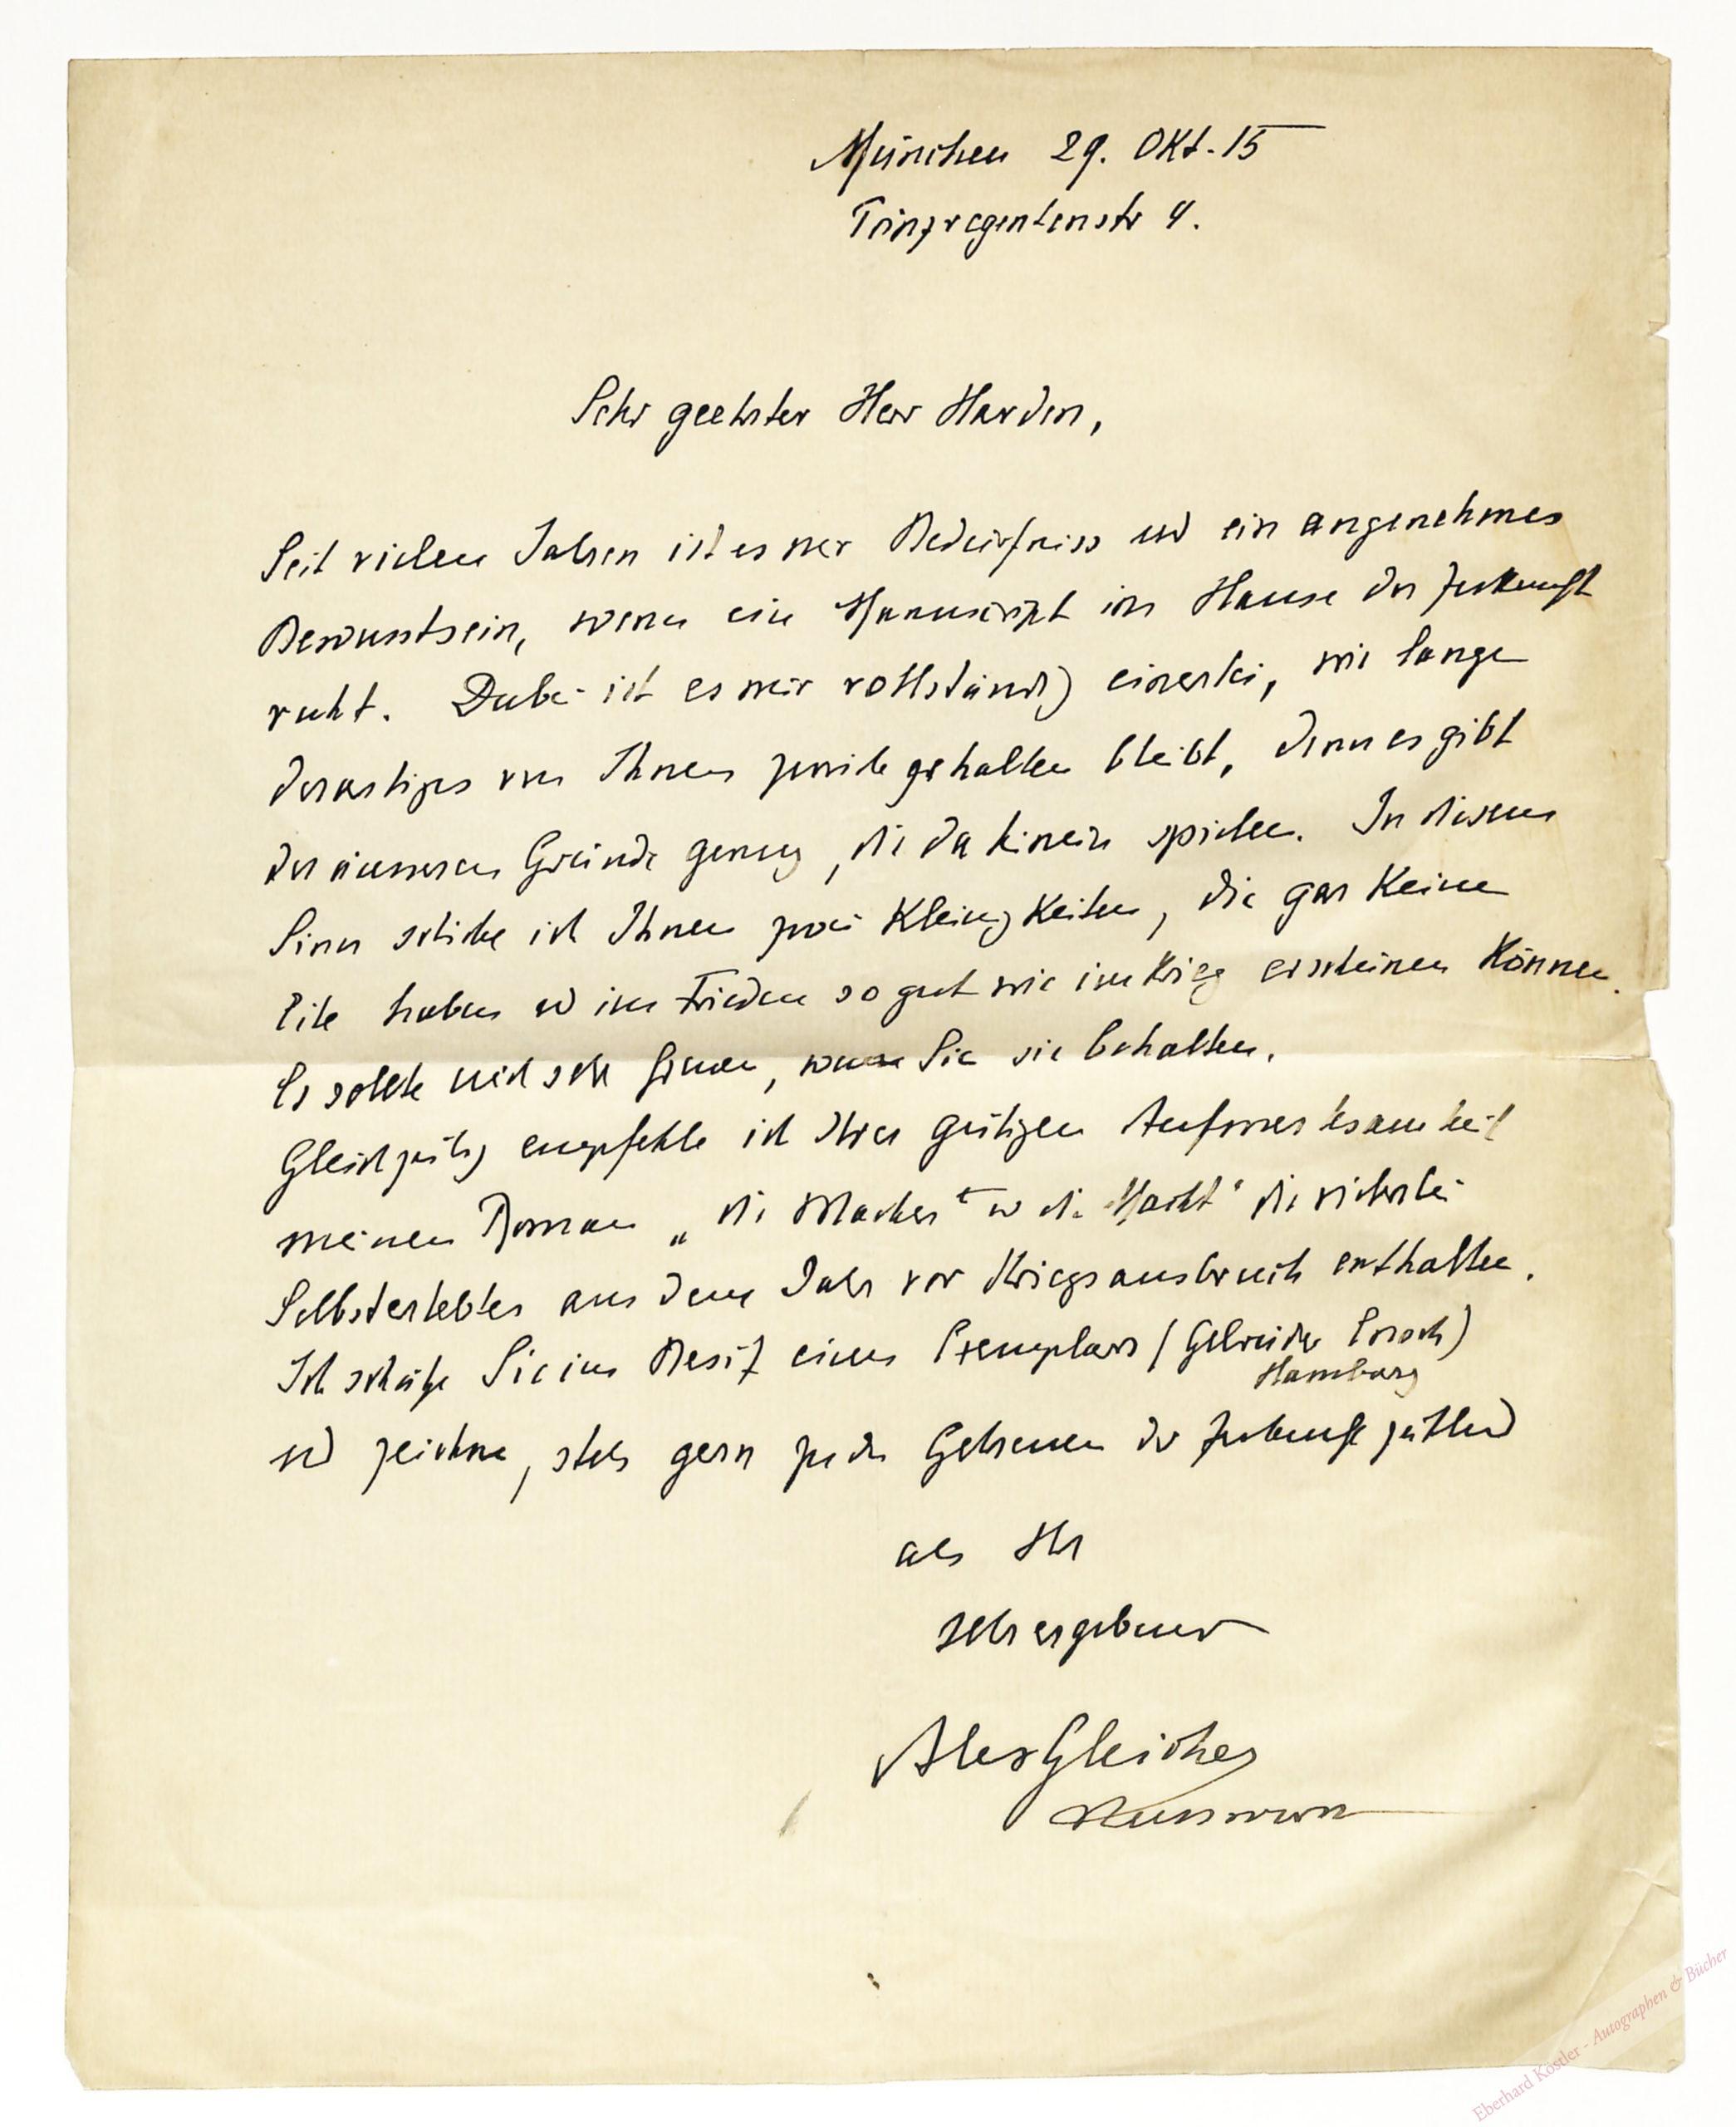 München 29. Okt. 15
Prinzregentenstr 4.
Sehr geehrter Herr Harden,
Seit vielen Jahren ist es mir Bedürfniss und ein angenehmes
Bewusstsein, wenn ein Manuscript im Hause der Zukunft
ruht. Dabei ist es mir vollständig einerlei, wie lange
derartiges von Ihnen zurückgehalten bleibt, denn es gibt
der äusseren Gründe genug, die da hinein spielen. In diesem
Sinn schicke ich Ihnen zwei Kleinigkeiten, die gar keine
Eile haben und im Frieden so gut wie im Krieg erscheinen können.
Es sollte mich sehr freuen, wenn Sie sie behalten.
Gleichzeitig empfehle ich Ihrer gütigen Aufmerksamkeit
meinen Roman „die Macher u die Macht" die vielerlei
Selbsterlebtes aus dem Jahr vor Kriegsausbruch enthalten.
Ich schätze Sie im Besitz eines Exemplars (Gebrüder Enoch)
Hamburg
und zeichne, stets gern zu den Getreuen der Zukunft zählend
als Ihr
sehr ergebener
Alex Gleichen
Russwurm
Eberhard Köstler - Autographen & Bücher